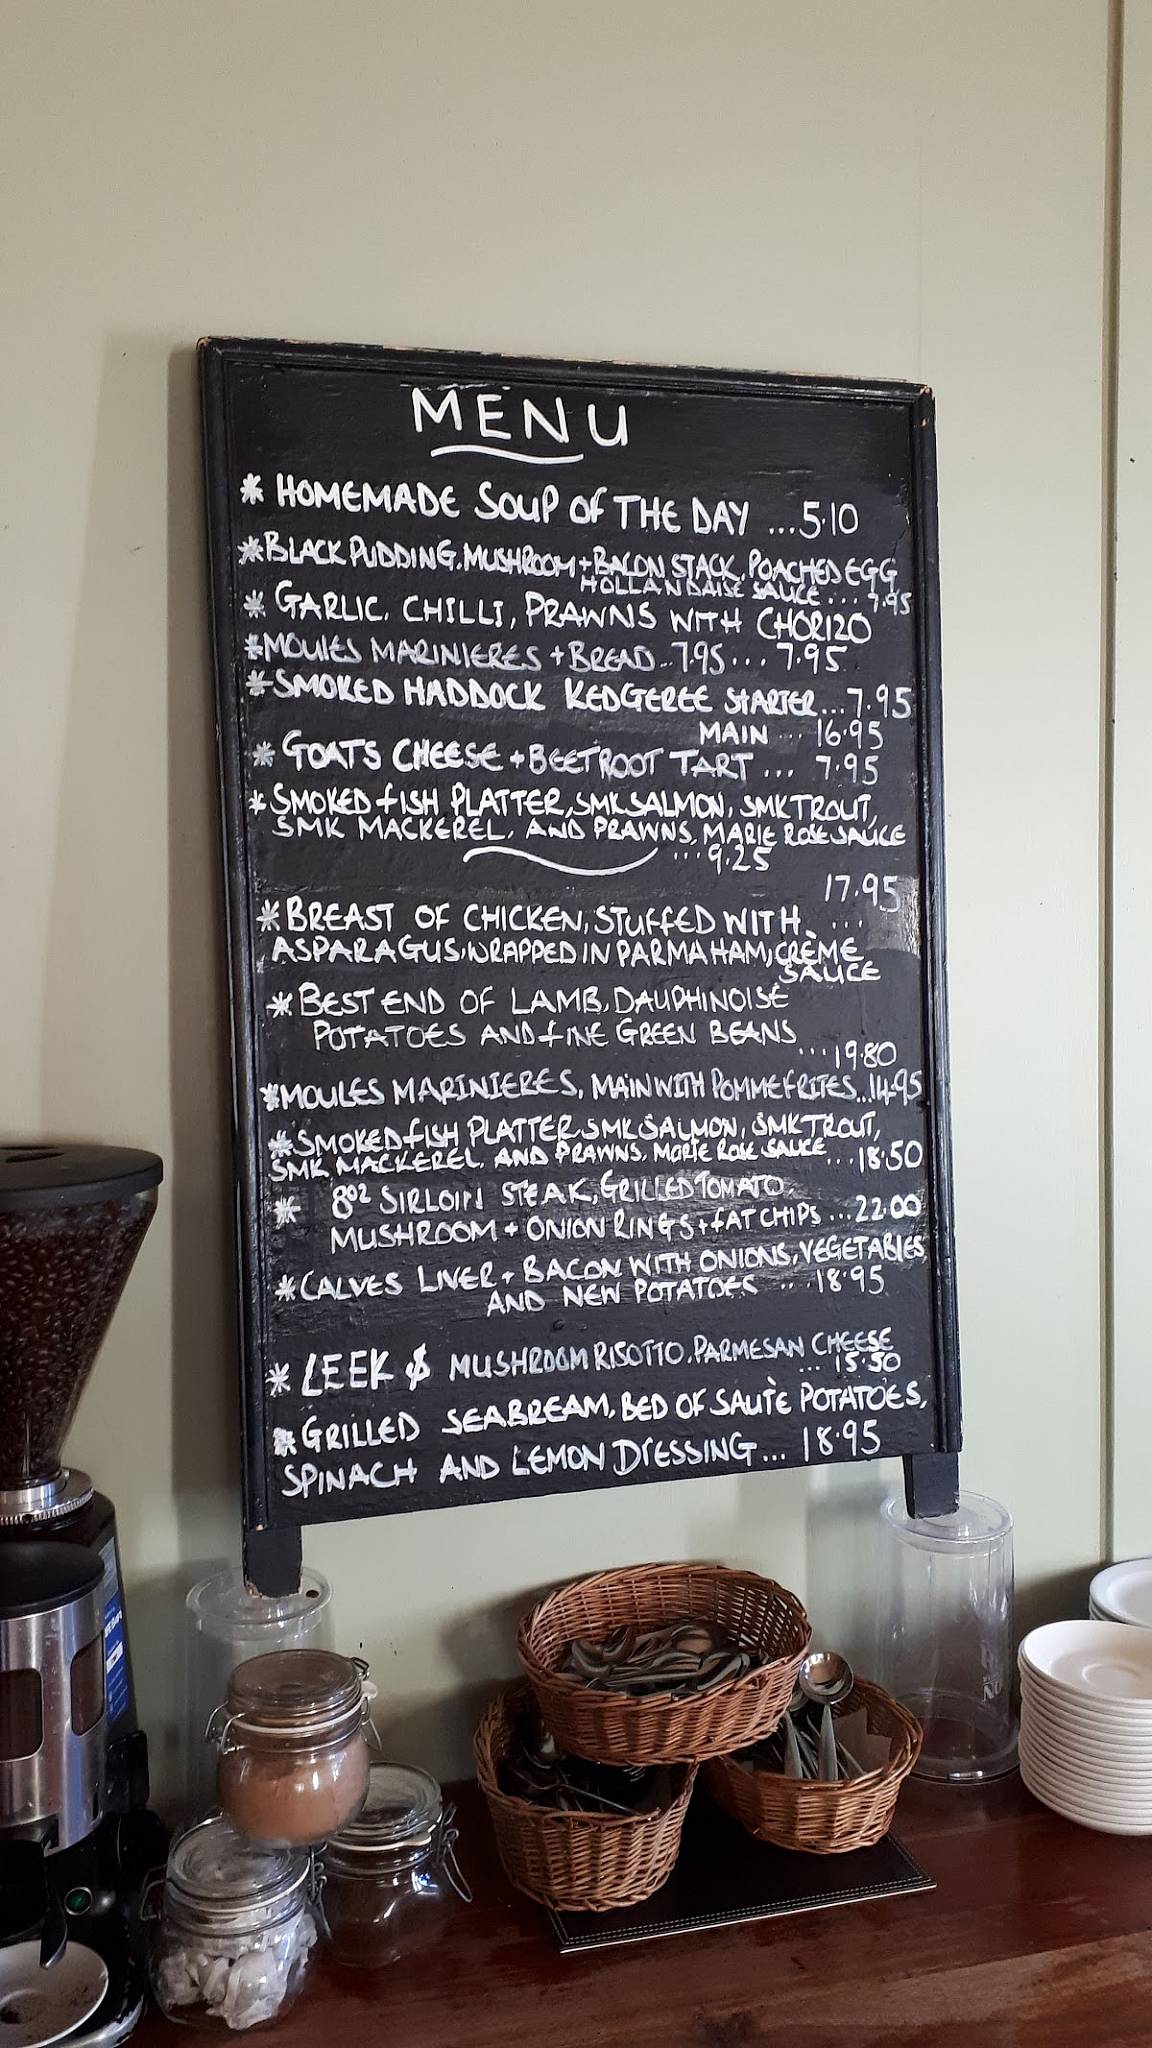 MENU
* HOMEMADE SOUP OF THE DAY ...5.10
* BLACK PUDDING, MUSHROOM + BACON STACK, POACHED EGG
HOLLANDAISE SAUCE ... 7.95
* GARLIC, CHILLI, PRAWNS WITH CHORIZO
* MOULES MARINIERES + BREAD ...7.95 ... 7.95
* SMOKED HADDOCK KEDGEREE STARTER ...7.95
MAIN ... 16.95
* GOATS CHEESE + BEETROOT TART ... 7.95
* SMOKED FISH PLATTER, SMK SALMON, SMK TROUT,
SMK MACKEREL, AND PRAWNS, MARIE ROSE SAUCE
... 9.25
17.95
* BREAST OF CHICKEN, STUFFED WITH ...
ASPARAGUS, WRAPPED IN PARMA HAM, CRÈME
SAUCE
* BEST END OF LAMB, DAUPHINOISE
POTATOES AND FINE GREEN BEANS
... 19.80
* MOULES MARINIERES, MAIN WITH POMME FRITES ...14.95
* SMOKED FISH PLATTER SMK SALMON, SMK TROUT,
SMK MACKEREL, AND PRAWNS, MARIE ROSE SAUCE ...18.50
* 8OZ SIRLOIN STEAK, GRILLED TOMATO
MUSHROOM + ONION RINGS + FAT CHIPS ...22.00
* CALVES LIVER + BACON WITH ONIONS, VEGETABLES
AND NEW POTATOES ... 18.95
* LEEK & MUSHROOM RISOTTO, PARMESAN CHEESE
... 15.50
* GRILLED SEABREAM, BED OF SAUTÈ POTATOES,
SPINACH AND LEMON DRESSING ... 18.95